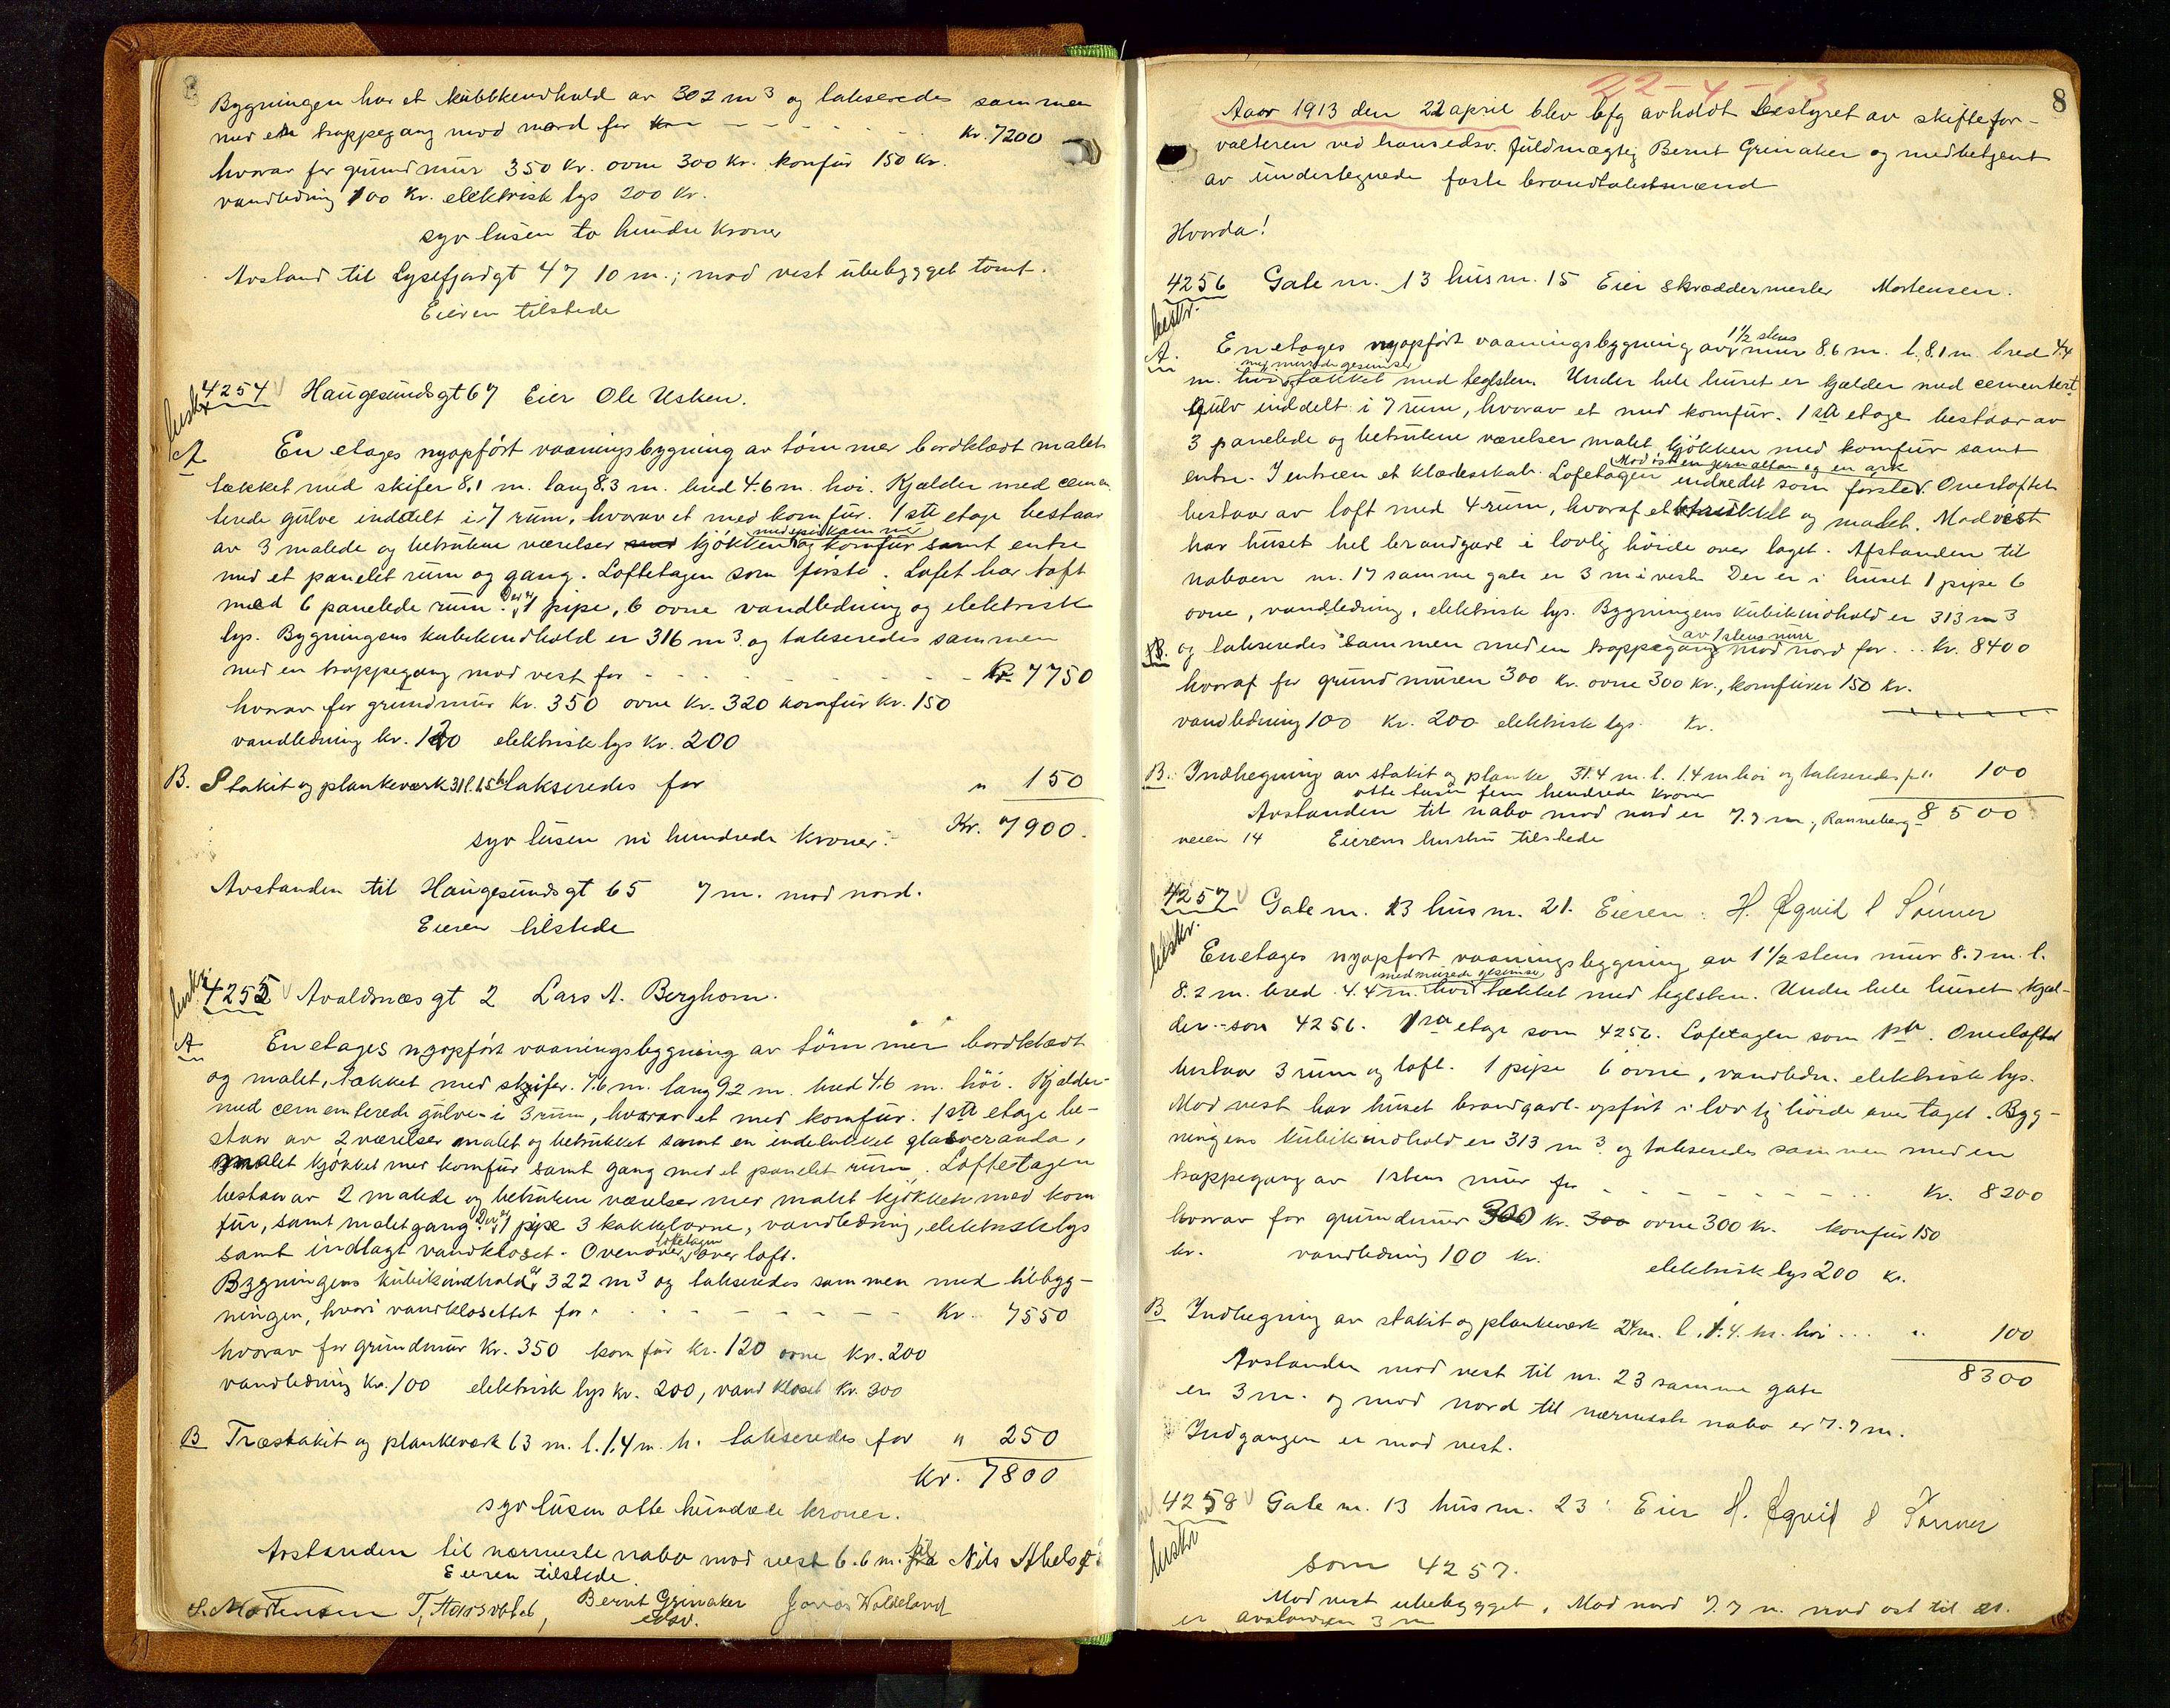 Bygningen har et kubbkendhold av 302 m3 og takseredes sammen
med en trappegang mod nord for Kr. 7200
hvorav for grundmur 350 Kr. ovne 300 Kr. komfur 150 Kr.
vandledning 100 Kr. elektrisk lys 200 Kr.
syv tusen to hundre Kroner
Avstand til Lysefjordgt 47 10 m.; mod vest ubebygget tomt.
Eieren tilstede
4254 Haugesundsgt 67 Eier Ole Usken.
beskr
A En etages nyopført vaaningsbygning av tømmer bordklædt malet
tækket med skifer 8,1 m. lang 8.3 m. bred 4.6 m. høi. Kjælder med cemen
terede gulve inddelt i 7 rum, hvorav et med komfur. 1ste etage bestaar
med spiskammer
av 3 malede og betrukne værelser kjøkken og komfur samt entre
med et panelet rum og gang. Loftetagen som første. Loftet har loft
med 6 panelede rum. Der er 1 pipe, 6 ovne vandledning og elektrisk
lys. Bygningens kubikindhold er 316 m3. og takseredes sammen
med en trappegang mod vest for Kr. 7750
hvorav for grundmur Kr. 350 ovne Kr. 320 komfur Kr. 150
vandledning kr. 100 elektrisk lys Kr. 200
B. Stakit og plankeværk 31 l. 1.5 h. takseredes for " 150
syv tusen ni hundrede Kroner. Kr. 7900.
Avstanden til Haugesundsgt 65 7 m. mod nord.
Eieren tilstede
beskr.
4255 Avaldsnæsgt 2 Lars A. Berghom.
A En etages nyopført vaaningsbygning av tømmer bordklædt
og malet, tækket med skifer. 7.6 m. lang 9.2 m. bred 4.6 m. høi. Kjælder
med cementerede gulve i 3 rum, hvorav et med komfur. 1ste etage be-
staar av 2 værelser malet og betrukket samt en indelukket glasveranda,
malet kjøkken med komfur samt gang med et panelet rum. Loftetagen
bestaar av 2 malede og betrukne værelser med malet kjøkken med kom
fur, samt malet gang. Der er 1 pipe 3 kakkelovne, vandledning, elektrisk lys
samt indlagt vandkloset. Ovenover loftetagen over loft.
Bygningens kubikindhold er 322 m3 og takseredes sammen med tilbyg-
ningen, hvori vandklosettet for Kr. 7550
hvorav for grundmur Kr. 350 komfur kr. 120 ovne Kr. 200
vandledning Kr. 100 elektrisk lys kr. 200, vandkloset Kr. 300
B Træstakit og plankeværk 63 m. l. 1.4 m. h. takseredes for " 250
Kr. 7800
syv tusen otte hundrede kroner.
Avstanden til nærmeste nabo mod vest 6.6 m. til Nils Abels
Eieren tilstede.
S. Mortensen Bernt Grinaker Jonas Waldeland
edsv.
22-4-13
8
Aar 1913 den 22 april blev bfg avholdt bestyret av skiftefor-
valteren ved hans edsv. fuldmægtig Bernt Grinaker og medbetjent
av undertegnede faste brandtakstmænd
Hvorda!
4256 Gate nr. 13 husnr. 15 Eier skræddermester Mortensen.
beskr.
1½ stens
A. En etages nyopført vaaningsbygning av mur 8.6 m. l. 8.1 m. bred 4.4
med murede gesimser
m. høi og tækket med teglsten. Under hele huset er kjælder med cementert
gulv inddelt i 7 rum, hvorav et med komfur. 1ste etage bestaar av
3 panelede og betrukne værelser malet kjøkken med komfur samt
Mod øst en jernaltan og en ark
entre. I entreen et klædesskab. Loftetagen indredet som første. Overloftet
bestaar av loft med 4 rum, hvoraf et betrukket og malet. Mod vest
har huset hel brandgavl i lovlig høide over taget. Afstanden til
naboen nr. 17 samme gate er 3 m i vest. Der er i huset 1 pipe 6
ovne, vandledning, elektrisk lys. Bygningens kubikindhold er 313 m3
av 1 stens mur
og takseredes sammen med en trappegang mod nord for .. Kr. 8400
hvoraf for grundmuren 300 Kr. ovne 300 Kr., komfurer 150 Kr.
vandledning 100 Kr. 200 elektrisk lys Kr.
B. Indhegning av stakit og planke 31.4 m. l. 1.4 m høi og takseredes for " 100
otte tusen fem hundrede Kroner
Avstanden til nabo mod nord er 7.7 m., Ranneberg- 8500
veien 14 Eierens hustru tilstede
4257 Gate nr. 13 husnr. 21. Eieren: H. Eqvid & Sønner
beskr.
En etages nyopført vaaningsbygning av 1½ stens mur 8.7 m. l.
med murede gesimser
8.2 m. bred 4.4 m. høi tækket med teglsten. Under hele huset kjæl-
der som 4256. 1ste etage som 4256. Loftetagen som 1ste. Overloftet
bestaar 3 rum og loft. 1 pipe 6 ovne, vandledn. elektrisk lys.
Mod vest har huset brandgavl opført i lovlig høide over taget. Byg-
ningens kubikindhold er 313 m3. og takseredes sammen med en
trappegang av 1stens mur for Kr. 8200
hvorav for grundmur 300 kr. ovne 300 Kr. komfur 150
kr. vandledning 100 Kr. elektrisk lys 200 Kr.
B Indhegning av stakit og plankeværk 24 m. l. 1.4. m. høi ... " 100
8300
Avstanden mod vest til nr. 23 samme gate
er 3 m. og mod nord til nærmeste nabo er 7.7 m.
Indgangen er mod vest.
4258 Gate nr. 13 husnr. 23: Eier H. Eqvid & Sønner
beskr
som 4257.
Mod vest ubebygget. Mod nord 7.7 m. mod ost til 21.
er avstanden 3 m